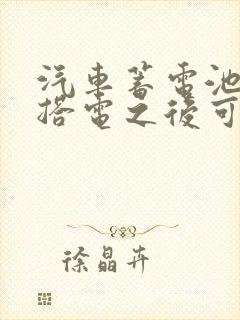 汽車蓄電池
搭電之後可
徐晶卉